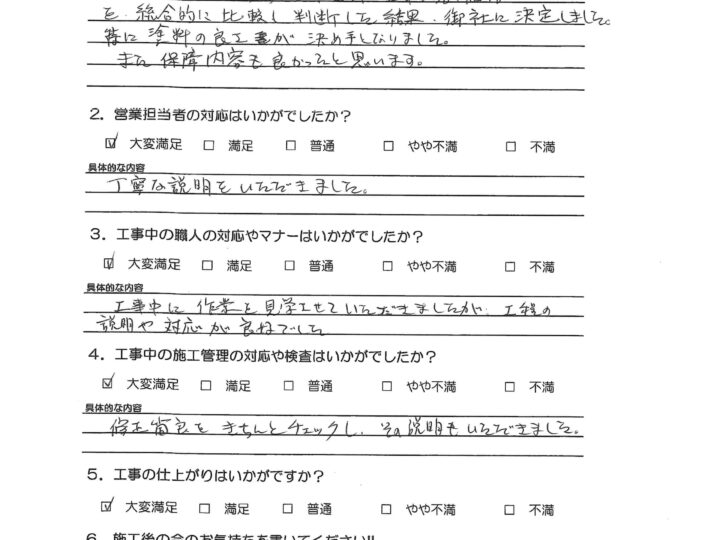 を、総合的に比較し判断した結果、御社に決定しました。
特に塗料の良工事が決め手となりました。
また保障内容も良かったと思います。
2. 営業担当者の対応はいかがでしたか?
☑ 大変満足 □ 満足 □ 普通 □ やや不満 □ 不満
具体的な内容
丁寧な説明をいただきました。
3. 工事中の職人の対応やマナーはいかがでしたか?
☑ 大変満足 □ 満足 □ 普通 □ やや不満 □ 不満
具体的な内容
工事中に作業を見学させていただきましたが、工程の
説明や対応が良かったでした
4. 工事中の施工管理の対応や検査はいかがでしたか?
☑ 大変満足 □ 満足 □ 普通 □ やや不満 □ 不満
具体的な内容
修正箇所をきちんとチェックし、その説明もいただきました。
5. 工事の仕上がりはいかがですか?
☑ 大変満足 □ 満足 □ 普通 □ やや不満 □ 不満
6. 施工後の今のお気持ちを書いてください!!